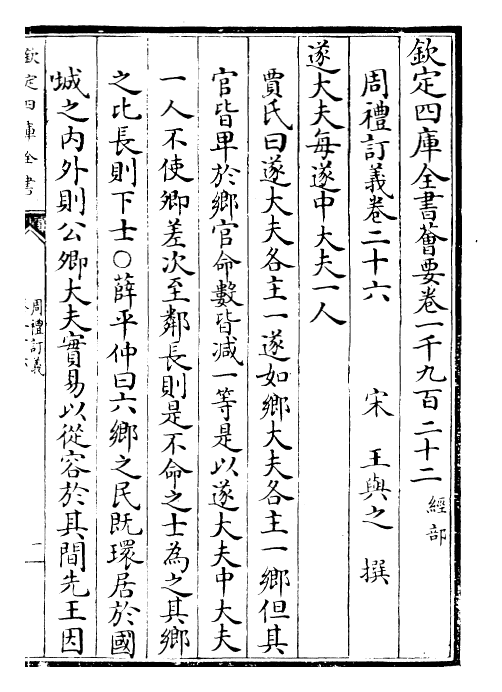 欽定四庫全書薈要卷一千九百二十二 經部
周禮訂義卷二十六 宋 王與之 撰
遂大夫每遂中大夫一人
賈氏曰遂大夫各主一遂如鄉大夫各主一鄉但其
官皆卑於鄉官命數皆减一等是以遂大夫中大夫
一人不使卿差次至鄰長則是不命之士為之其鄉
之比長則下士○薛平仲曰六鄉之民既環居於國
城之内外則公卿大夫實易以從容於其間先王因
欽定四庫全書
周禮訂義